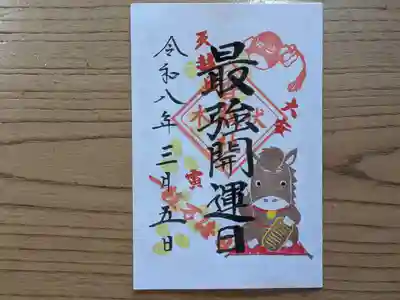 大安
最強開運日
天赦
寅
令和八年三月五日